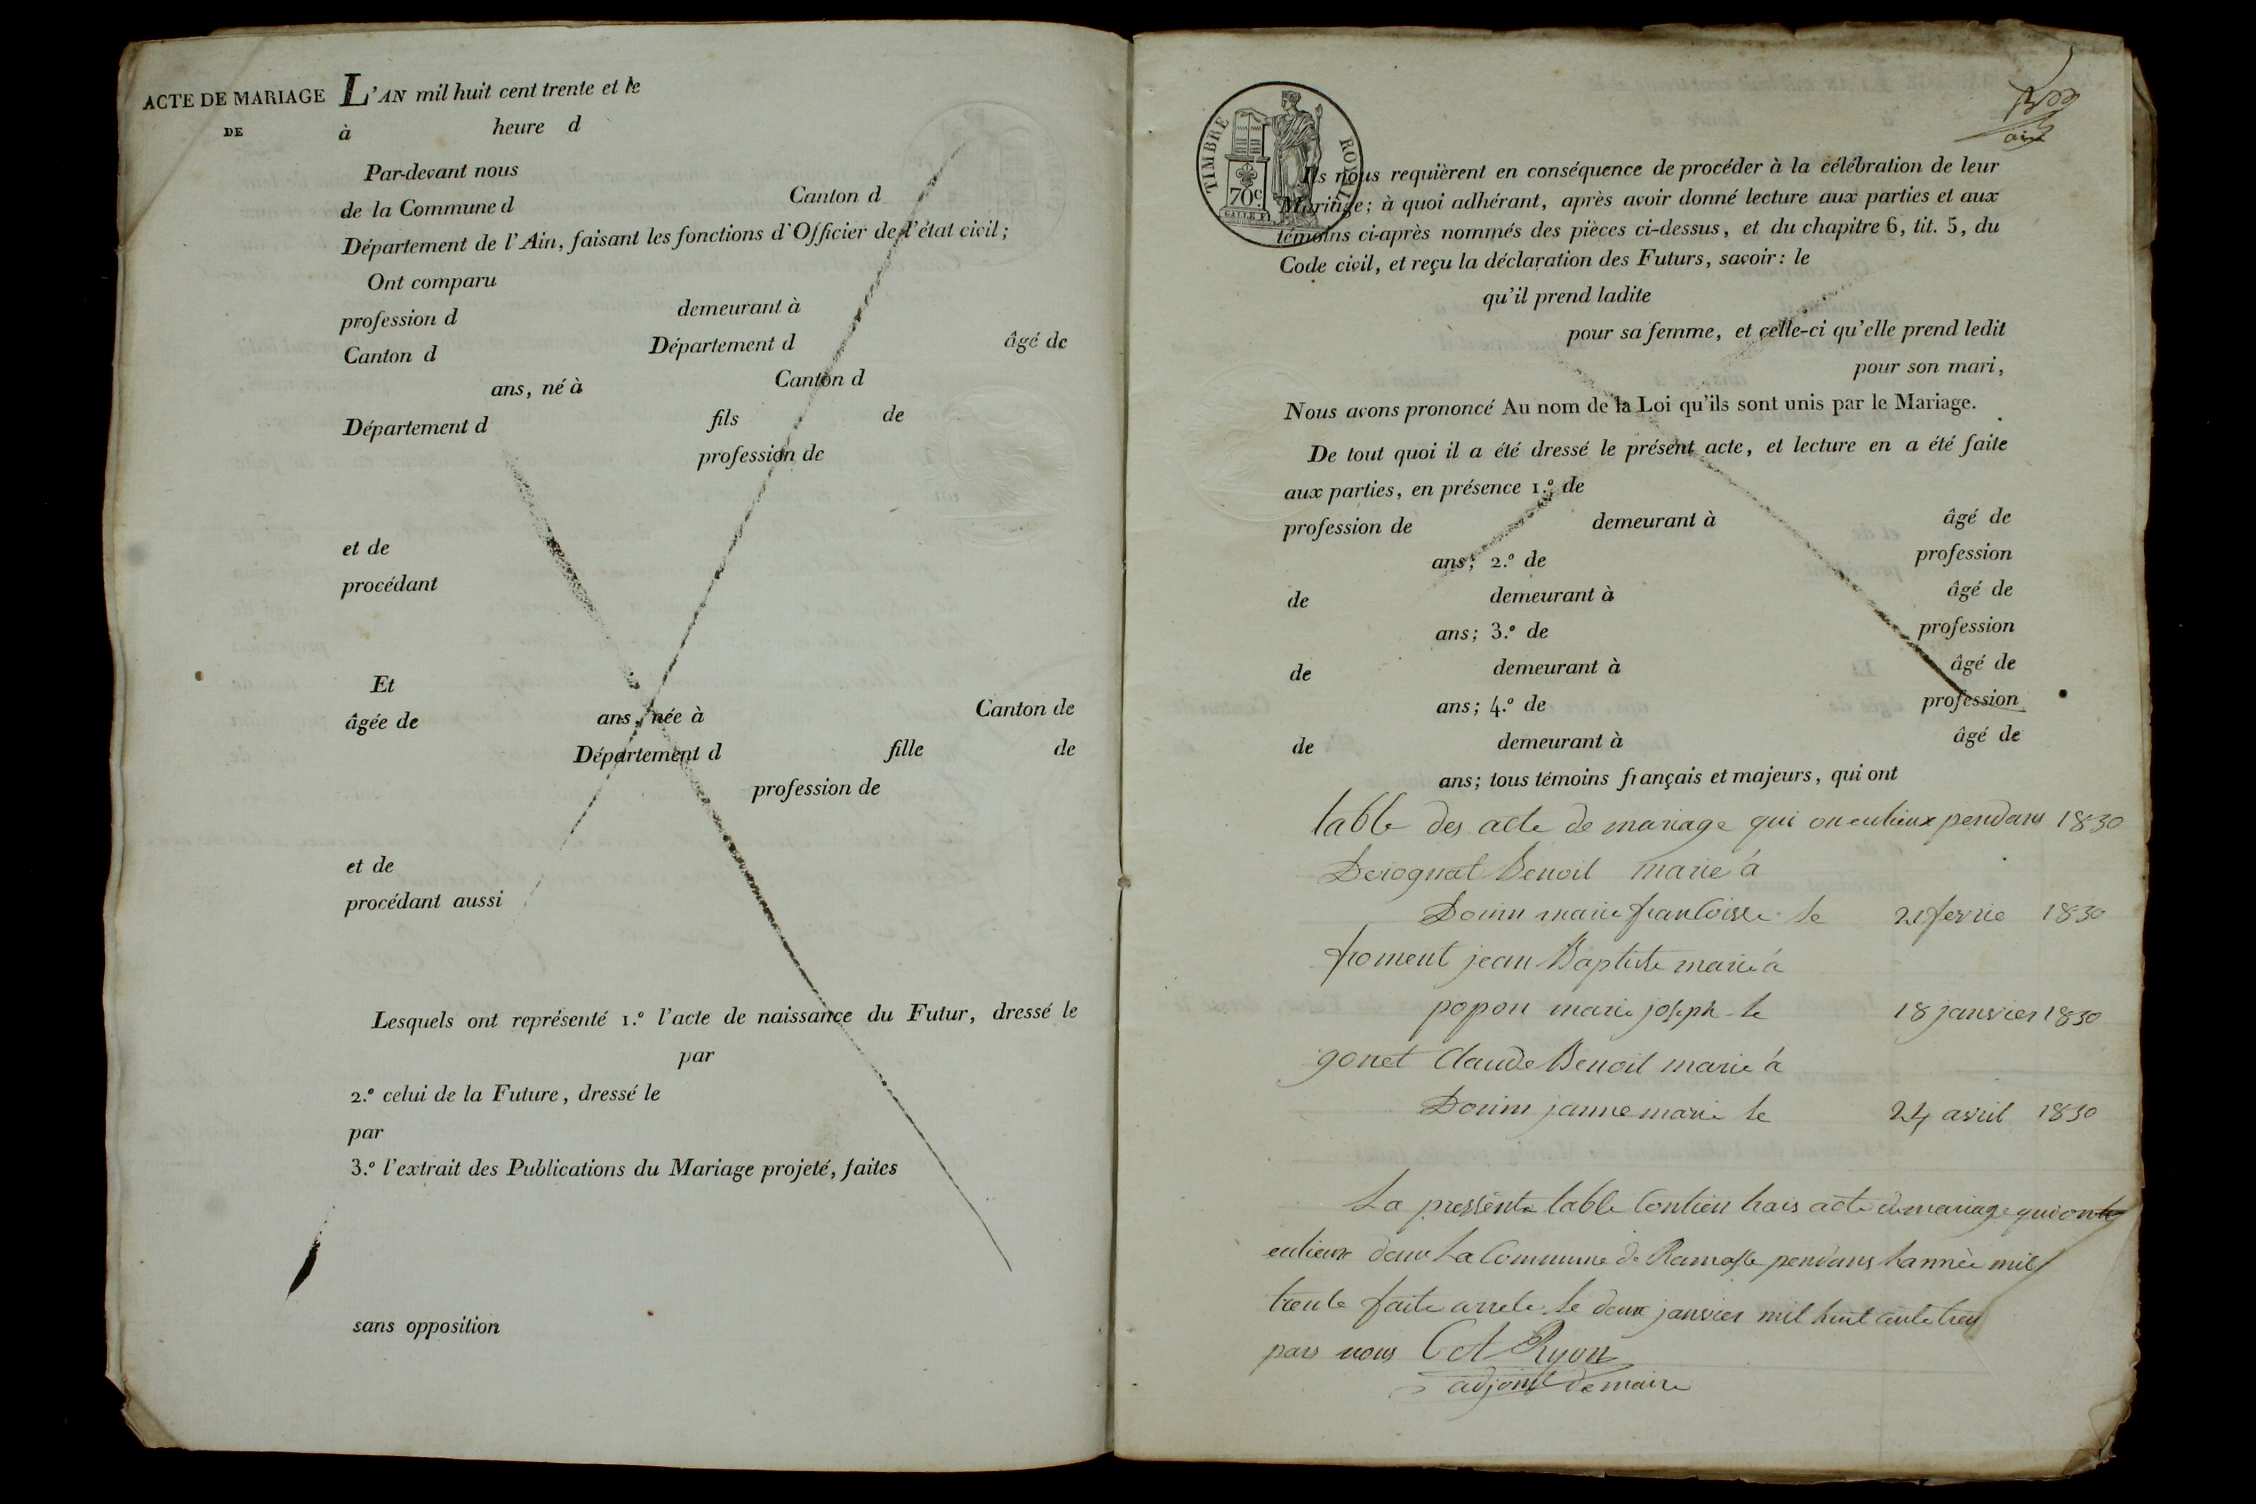 ACTE DE MARIAGE
DE
L'AN mil huit cent trente et le
à heure d
Par-devant nous
de la Commune d Canton d
Département de l'Ain, faisant les fonctions d'Officier de l'état civil;
Ont comparu
profession d demeurant à
Canton d Département d âgé de
ans, né à Canton d
Département d fils de
profession de
et de
procédant
Et
âgée de ans, née à Canton de
Département d fille de
profession de
et de
procédant aussi
Lesquels ont représenté 1.º l'acte de naissance du Futur, dressé le
par
2.º celui de la Future, dressé le
par
3.º l'extrait des Publications du Mariage projeté, faites
sans opposition
TIMBRE ROYAL
70c
Ils nous requièrent en conséquence de procéder à la célébration de leur
Mariage; à quoi adhérant, après avoir donné lecture aux parties et aux
témoins ci-après nommés des pièces ci-dessus, et du chapitre 6, tit. 5, du
Code civil, et reçu la déclaration des Futurs, savoir: le
qu'il prend ladite
pour sa femme, et celle-ci qu'elle prend ledit
pour son mari,
Nous avons prononcé Au nom de la Loi qu'ils sont unis par le Mariage.
De tout quoi il a été dressé le présent acte, et lecture en a été faite
aux parties, en présence 1.º de
profession de demeurant à âgé de
ans; 2.º de profession
de demeurant à âgé de
ans; 3.º de profession
de demeurant à âgé de
ans; 4.º de profession
de demeurant à âgé de
ans; tous témoins français et majeurs, qui ont
table des acte de mariage qui on eulieux pendans 1830
Derognat Benoit marie á
Donin marie francoisse le 21 fevrie 1830
froment jean Baptiste marie á
popon marie joseph le 18 janvier 1830
gonet Claude Benoit marie á
Donin janne marie le 24 avril 1830
La pressente table Contien trais acte de mariage qui ont
eulieux dans La Commune de Ramasse pendans Lannèe mil
trente faite arrete le deux janvier mil huit cente tren
pars nous Ryon
adjoint de maire